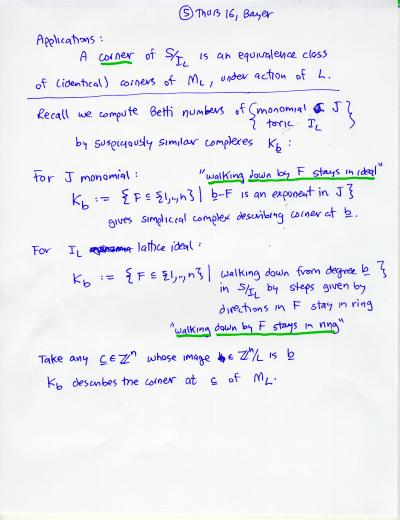 ⑤ THUR 16, Bayer
Applications:
A corner of S/I_L is an equivalence class
of (identical) corners of M_L, under action of L.
Recall we compute Betti numbers of { monomial J
toric I_L }
by suspiciously similar complexes K_b :
For J monomial: "walking down by F stays in ideal"
K_b := { F ⊆ {1,..,n} | b-F is an exponent in J }
gives simplicial complex describing corner at b.
For I_L lattice ideal:
K_b := { F ⊆ {1,..,n} | walking down from degree b
in S/I_L by steps given by
directions in F stay in ring }
"walking down by F stays in ring"
Take any c ∈ Z^n whose image ∈ Z^n/L is b
K_b describes the corner at c of M_L.